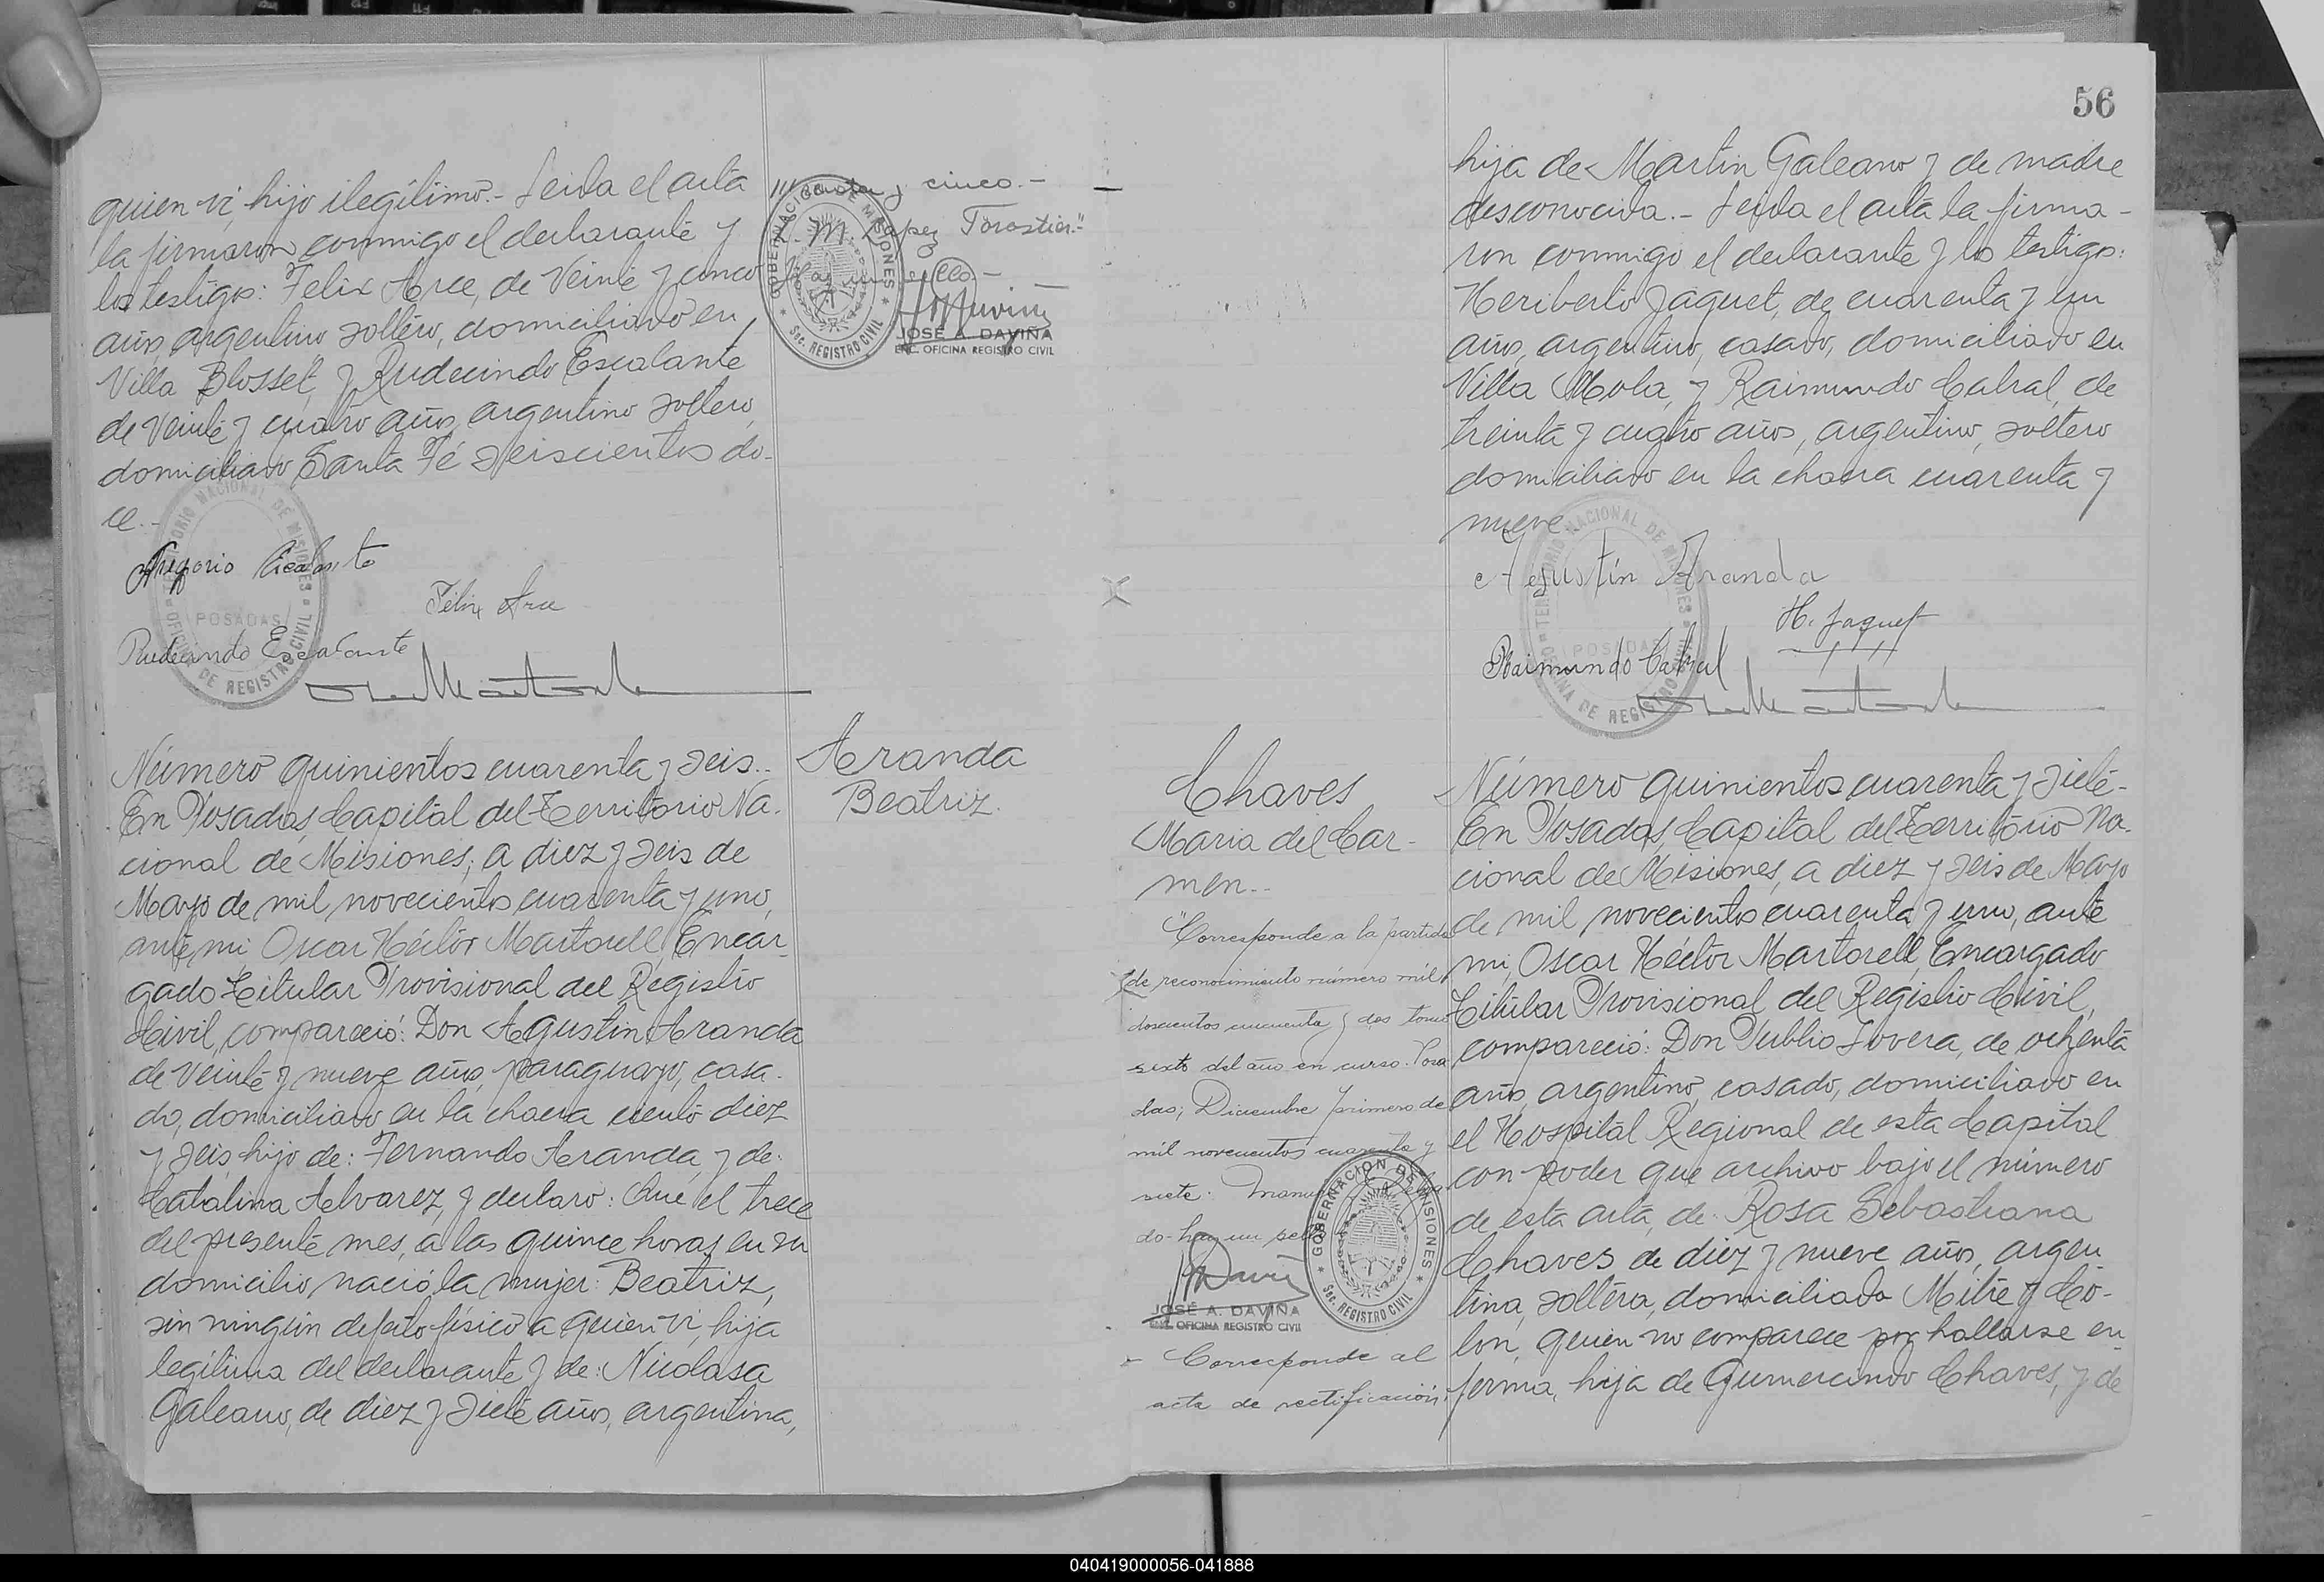 quien vi, hijo ilegítimo.- Leida el acta
la firmaron conmigo el declarante y
los testigos: Felix Arce, de Veinte y cinco
años, argentino soltero, domiciliado en
Villa Blosset, y Rudecindo Escalante
de Veinte y cuatro años, argentino soltero
domiciliado Santa Fé seiscientos do-
ce.-
Gregorio
Félix Arce
Rudecindo Escalante
TERRITORIO NACIONAL DE MISIONES
POSADAS
OFICINA DE REGISTRO CIVIL
y cinco.-
M. Lopez Torastier."
GOBERNACION DE MISIONES
Sec. REGISTRO CIVIL
JOSÉ A. DAVIÑA
ENC. OFICINA REGISTRO CIVIL
Número quinientos cuarenta y seis..
En Posadas, Capital del Territorio Na-
cional de Misiones, a diez y seis de
Mayo de mil novecientos cuarenta y uno,
ante mi, Oscar Héctor Martorell, Encar-
gado Titular Provisional del Registro
Civil, compareció: Don Agustin Aranda
de veinte y nueve años, paraguayo, casa-
do, domiciliado en la chacra ciento diez
y seis, hijo de: Fernando Aranda, y de:
Catalina Alvarez, y declaro: Que el trece
del presente mes, a las quince horas en su
domicilio nació la mujer: Beatriz,
sin ningún defecto físico a quien vi, hija
legítima del declarante y de: Nicolasa
Galeano, de diez y siete años, argentina,
Aranda
Beatriz.
56
hija de Martin Galeano y de madre
desconocida.- Leida el acta la firma-
ron conmigo el declarante y los testigos:
Heriberto Jaquet, de cuarenta y un
años, argentino, casado, domiciliado en
Villa Mola, y Raimundo Cabral, de
treinta y cuatro años, argentino, soltero
domiciliado en la chacra cuarenta y
nueve.
Agustín Aranda
H. Jaquet
Raimundo Cabral
TERRITORIO NACIONAL DE MISIONES
POSADAS
OFICINA DE REGISTRO CIVIL
Chaves
Maria del Car-
men..
"Corresponde a la partida
de reconocimiento número mil
doscientos cincuenta y dos tomo
sexto del año en curso. Posa
das, Diciembre primero de
mil novecientos cuarenta y
siete.
do- hay un sello
GOBERNACION DE MISIONES
Sec. REGISTRO CIVIL
JOSÉ A. DAVIÑA
ENC. OFICINA REGISTRO CIVIL
- Corresponde al
acta de rectificación
Número quinientos cuarenta y siete-
En Posadas, Capital del Territorio Na-
cional de Misiones, a diez y seis de Mayo
de mil novecientos cuarenta y uno, ante
mi, Oscar Héctor Martorell, Encargado
Titular Provisional del Registro Civil,
compareció: Don Publio Lovera, de ochenta
años, argentino, casado, domiciliado en
el Hospital Regional de esta Capital
con poder que archivo bajo el número
de esta acta, de: Rosa Sebastiana
Chaves de diez y nueve años, argen
tina, soltera, domiciliada Mitre y Co-
lon, quien no comparece por hallarse en-
ferma, hija de Gumercindo Chaves, y de
040419000056-041888